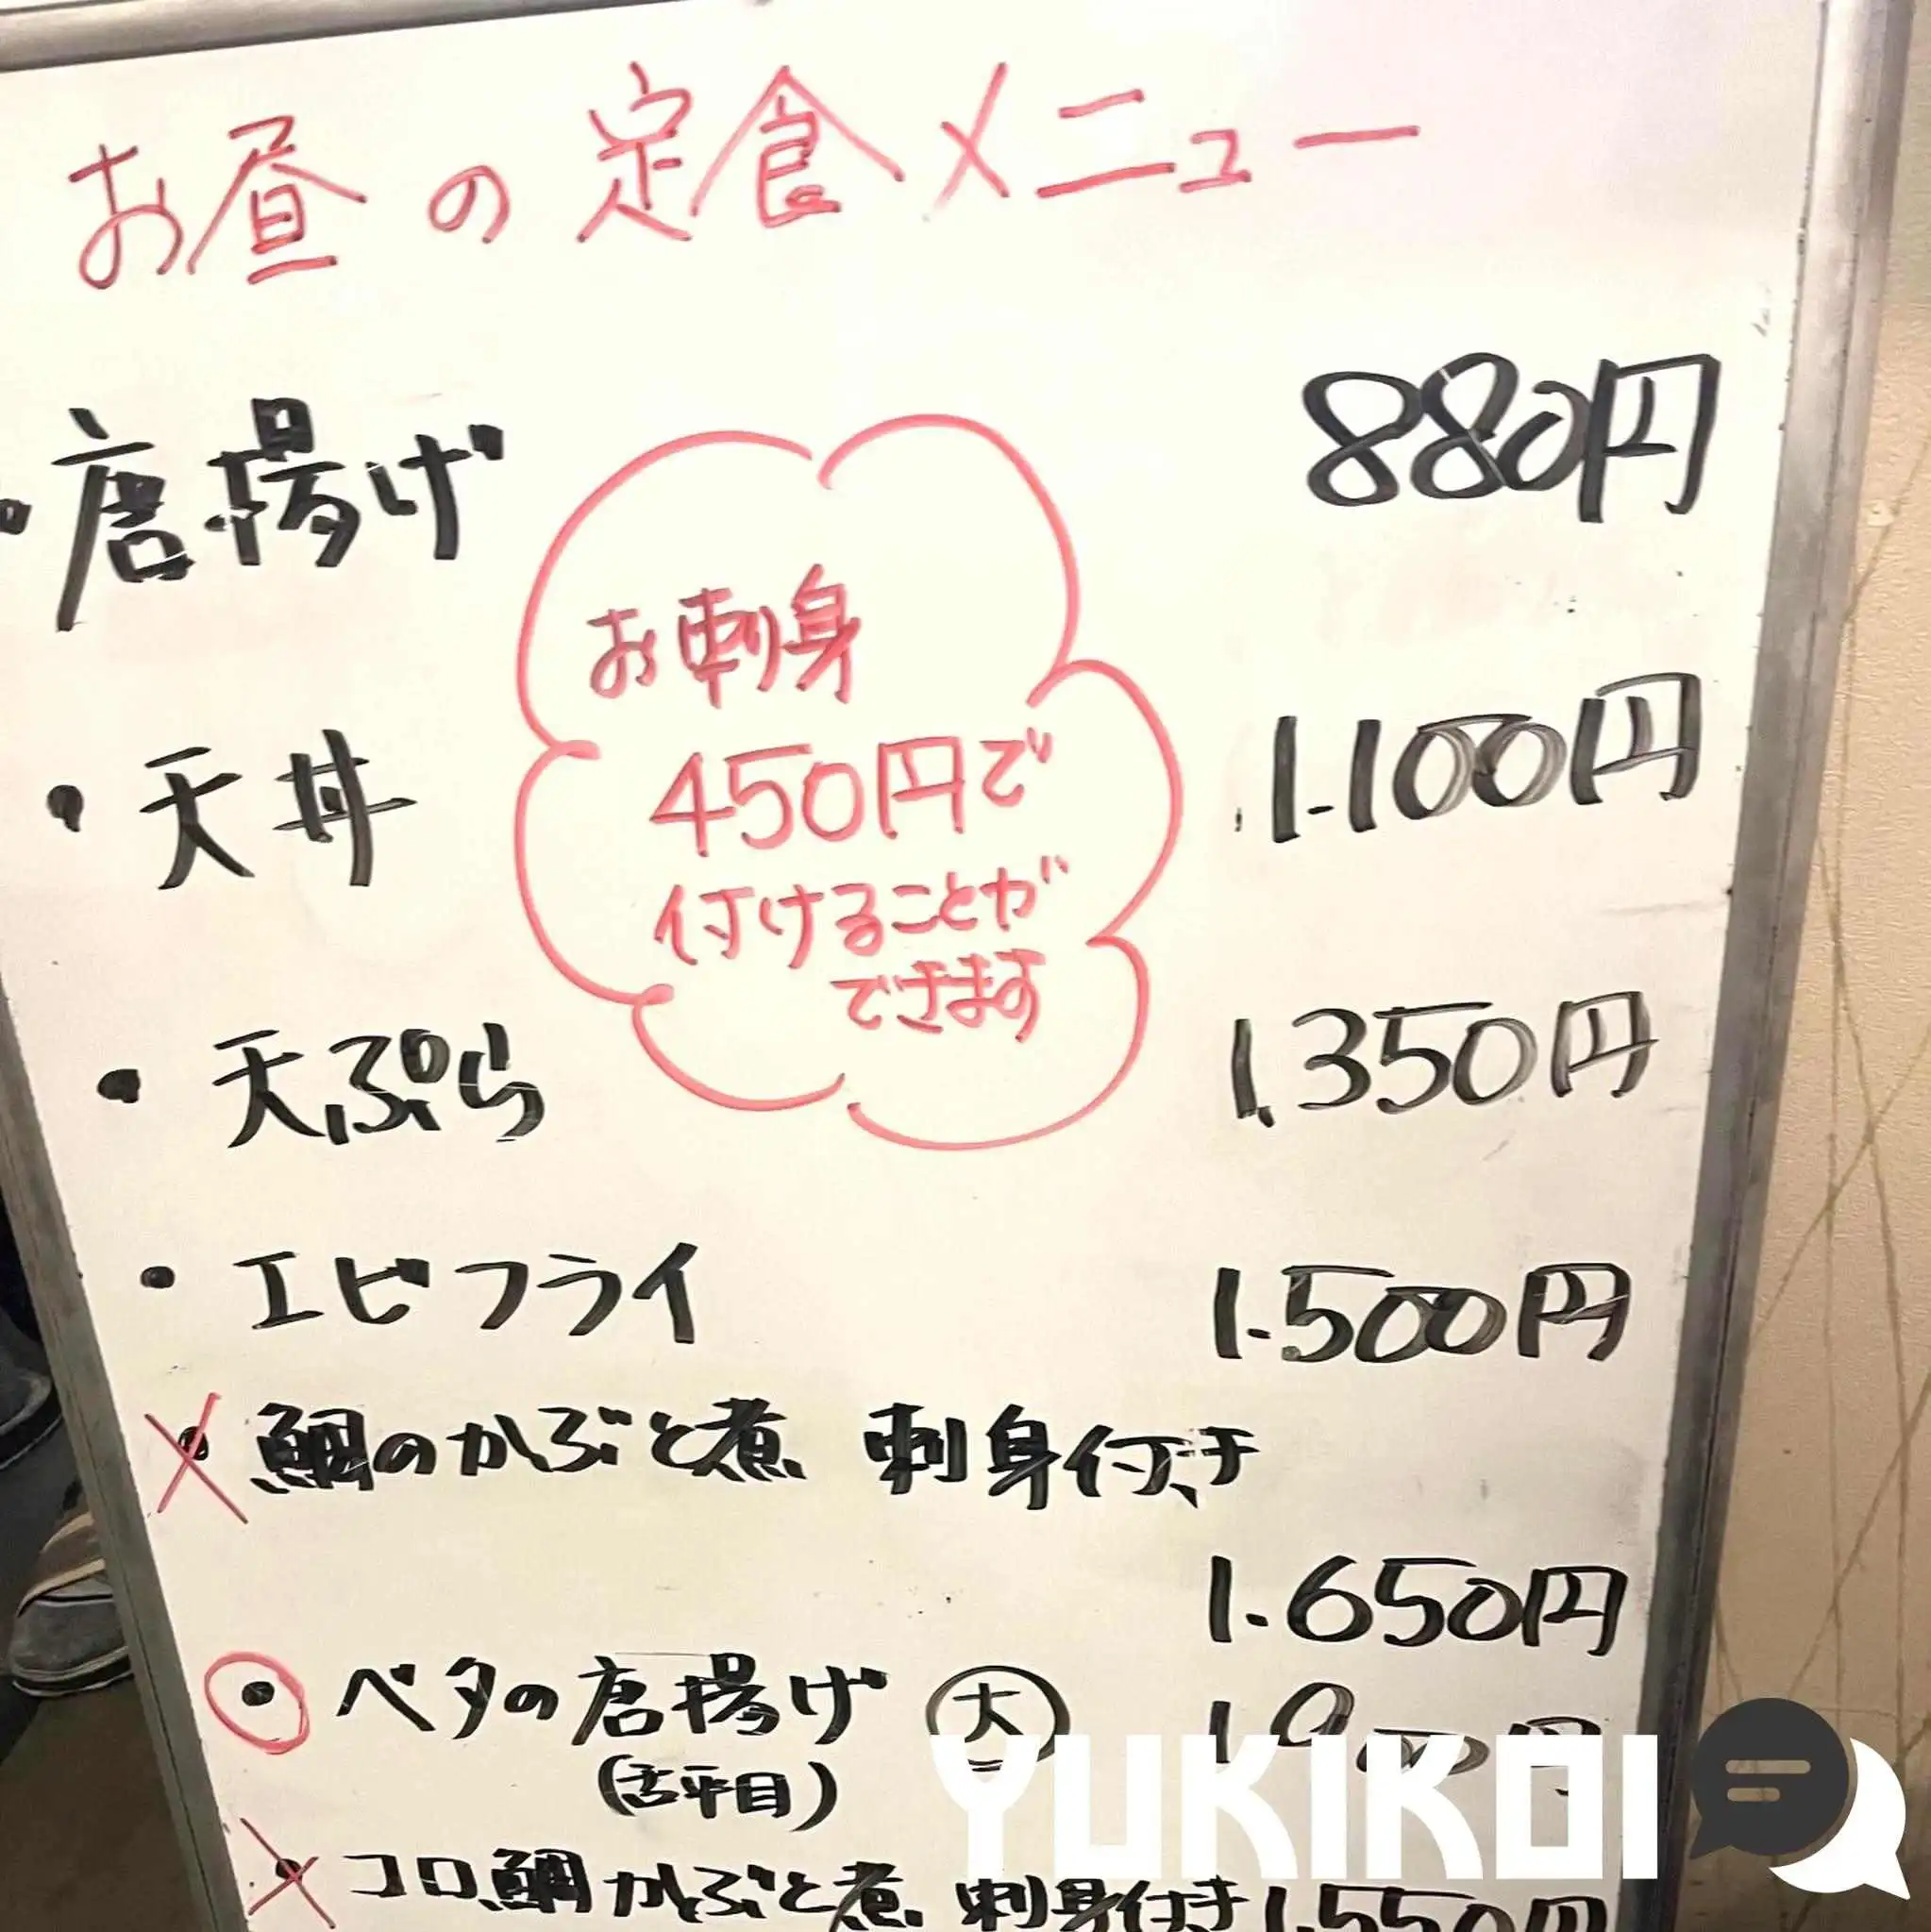 お昼の定食メニュー
・唐揚げ 880円
お刺身
450円で
付けることが
できます
・天丼 1.100円
・天ぷら 1,350円
・エビフライ 1.500円
・鯛のかぶと煮 刺身付き
1.650円
・ベタの唐揚げ 大
(舌平目)
YUKIKOI
・コロ鯛かぶと煮 刺身付き 1.550円